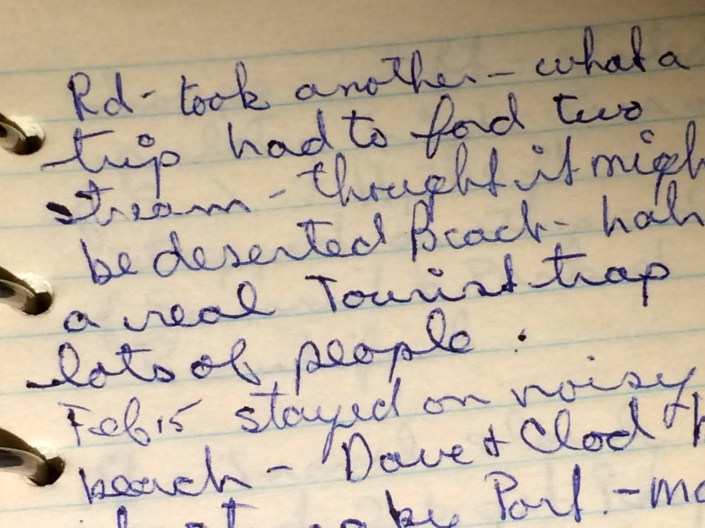 Rd - took another - what a
trip had to ford two
stream - thought it migh
be deserted Beach - hah
a real Tourist trap
lots of people .
Feb 15 stayed on noisy
beach - Dave & Clod &
by Port. - mo